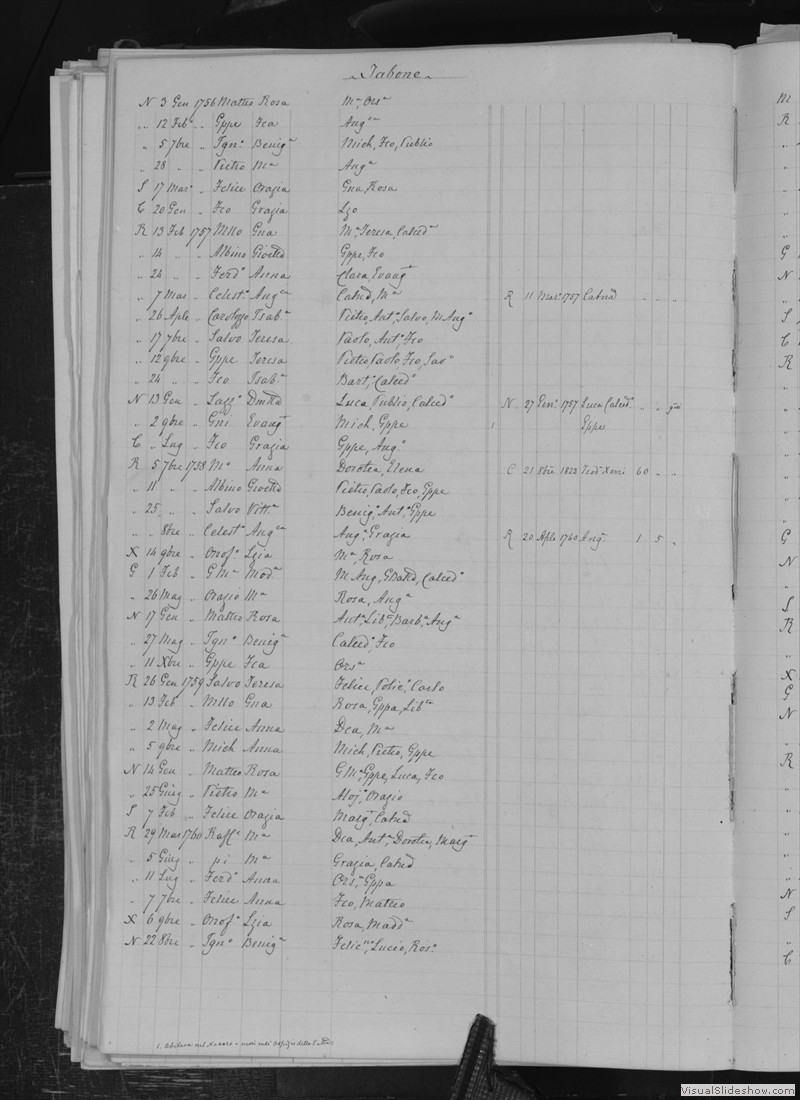 Tabone
N 3 Gen 1756 Matteo Rosa Mª, Orsª
" 12 Feb° " Gppe Fca Angca
" 5 7bre " Ign° Benigª Mich, Fco, Publio
" 28 " " Pietro Mª Angª
S 17 Mar° " Felice Orazia Gna, Rosa
C 20 Gen " Fco Grazia Lzo
R 13 Feb 1757 Mllo Gna Mª Teresa, Calcedª
" 14 " " Albino Gioetta Gppe, Fco
" 24 " " Ferd° Anna Clara, Evangta
" 7 Mar " Celest° Angca Catnd, Mª R 11 Mar° 1757 Catnd " " "
" 26 Aple " Isabª Pietro, Ant° Salvo, M Angª
" 17 7bre " Salvo Teresa Paolo, Ant° Fco
" 12 9bre " Gppe Teresa Pietro Paolo Fco, Sav°
" 24 " " Fco Isabª Bart° Calced°
N 13 Gen " Lazz° Dmtlla Luca, Publio, Calced° N 27 Gen° 1757 Luca Calced° " "
" 2 9bre " Gni Evangta Mich, Gppe 1 Gppe
C " Lug " Fco Grazia Gppe, Ang°
R 5 7bre 1758 Mª Anna Dorotea, Elena C 21 8bre 1823 Ved° Xerri 60 " "
" 11 " " Albino Gioetta Pietro Paolo, Fco, Gppe
" 25 " " Salvo Vittª Benig° Ant° Gppe
" " 8bre " Celest° Angca Angª Grazia R 20 Aple 1760 Angª 1 5 "
X 14 9bre " Onof° Lzia Mª, Rosa
G 1 Feb " G Mª Modª M Ang, GBatta, Calced°
" 26 Mag " Orazio Mª Rosa, Angª
N 17 Gen " Matteo Rosa Antª Libª Barbª Angª
" 27 Mag " Ign° Benigª Calced° Fco
" 11 Xbre " Gppe Fca Orsª
R 26 Gen 1759 Salvo Teresa Felice, Polic° Carlo
" 13 Feb " Mllo Gna Rosa, Gppa, Libta
" 2 Mag " Felice Anna Dca, Mª
" 5 9bre " Mich Anna Mich, Pietro, Gppe
N 14 Gen " Matteo Rosa G Mª, Gppe, Luca, Fco
" 25 Giug " Pietro Mª Aloj° Orazio
S 7 Feb " Felice Orazia Margta, Catnd
R 29 Mar 1760 Raffe Mª Dca, Antª, Dorotea, Margta
" 5 Giug " pi Mª Grazia, Catnd
" 11 Lug " Ferd° Anna Orsª, Gppa
" 7 7bre " Felice Anna Fco, Matteo
X 6 9bre " Onof° Lzia Rosa, Maddª
N 22 8bre " Ign° Benigª Felicna, Lucio, Ros°
VisualSlideshow.com